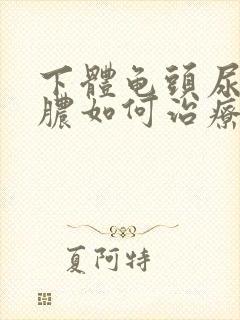 下體龟頭尿
膿如何治療
夏阿特